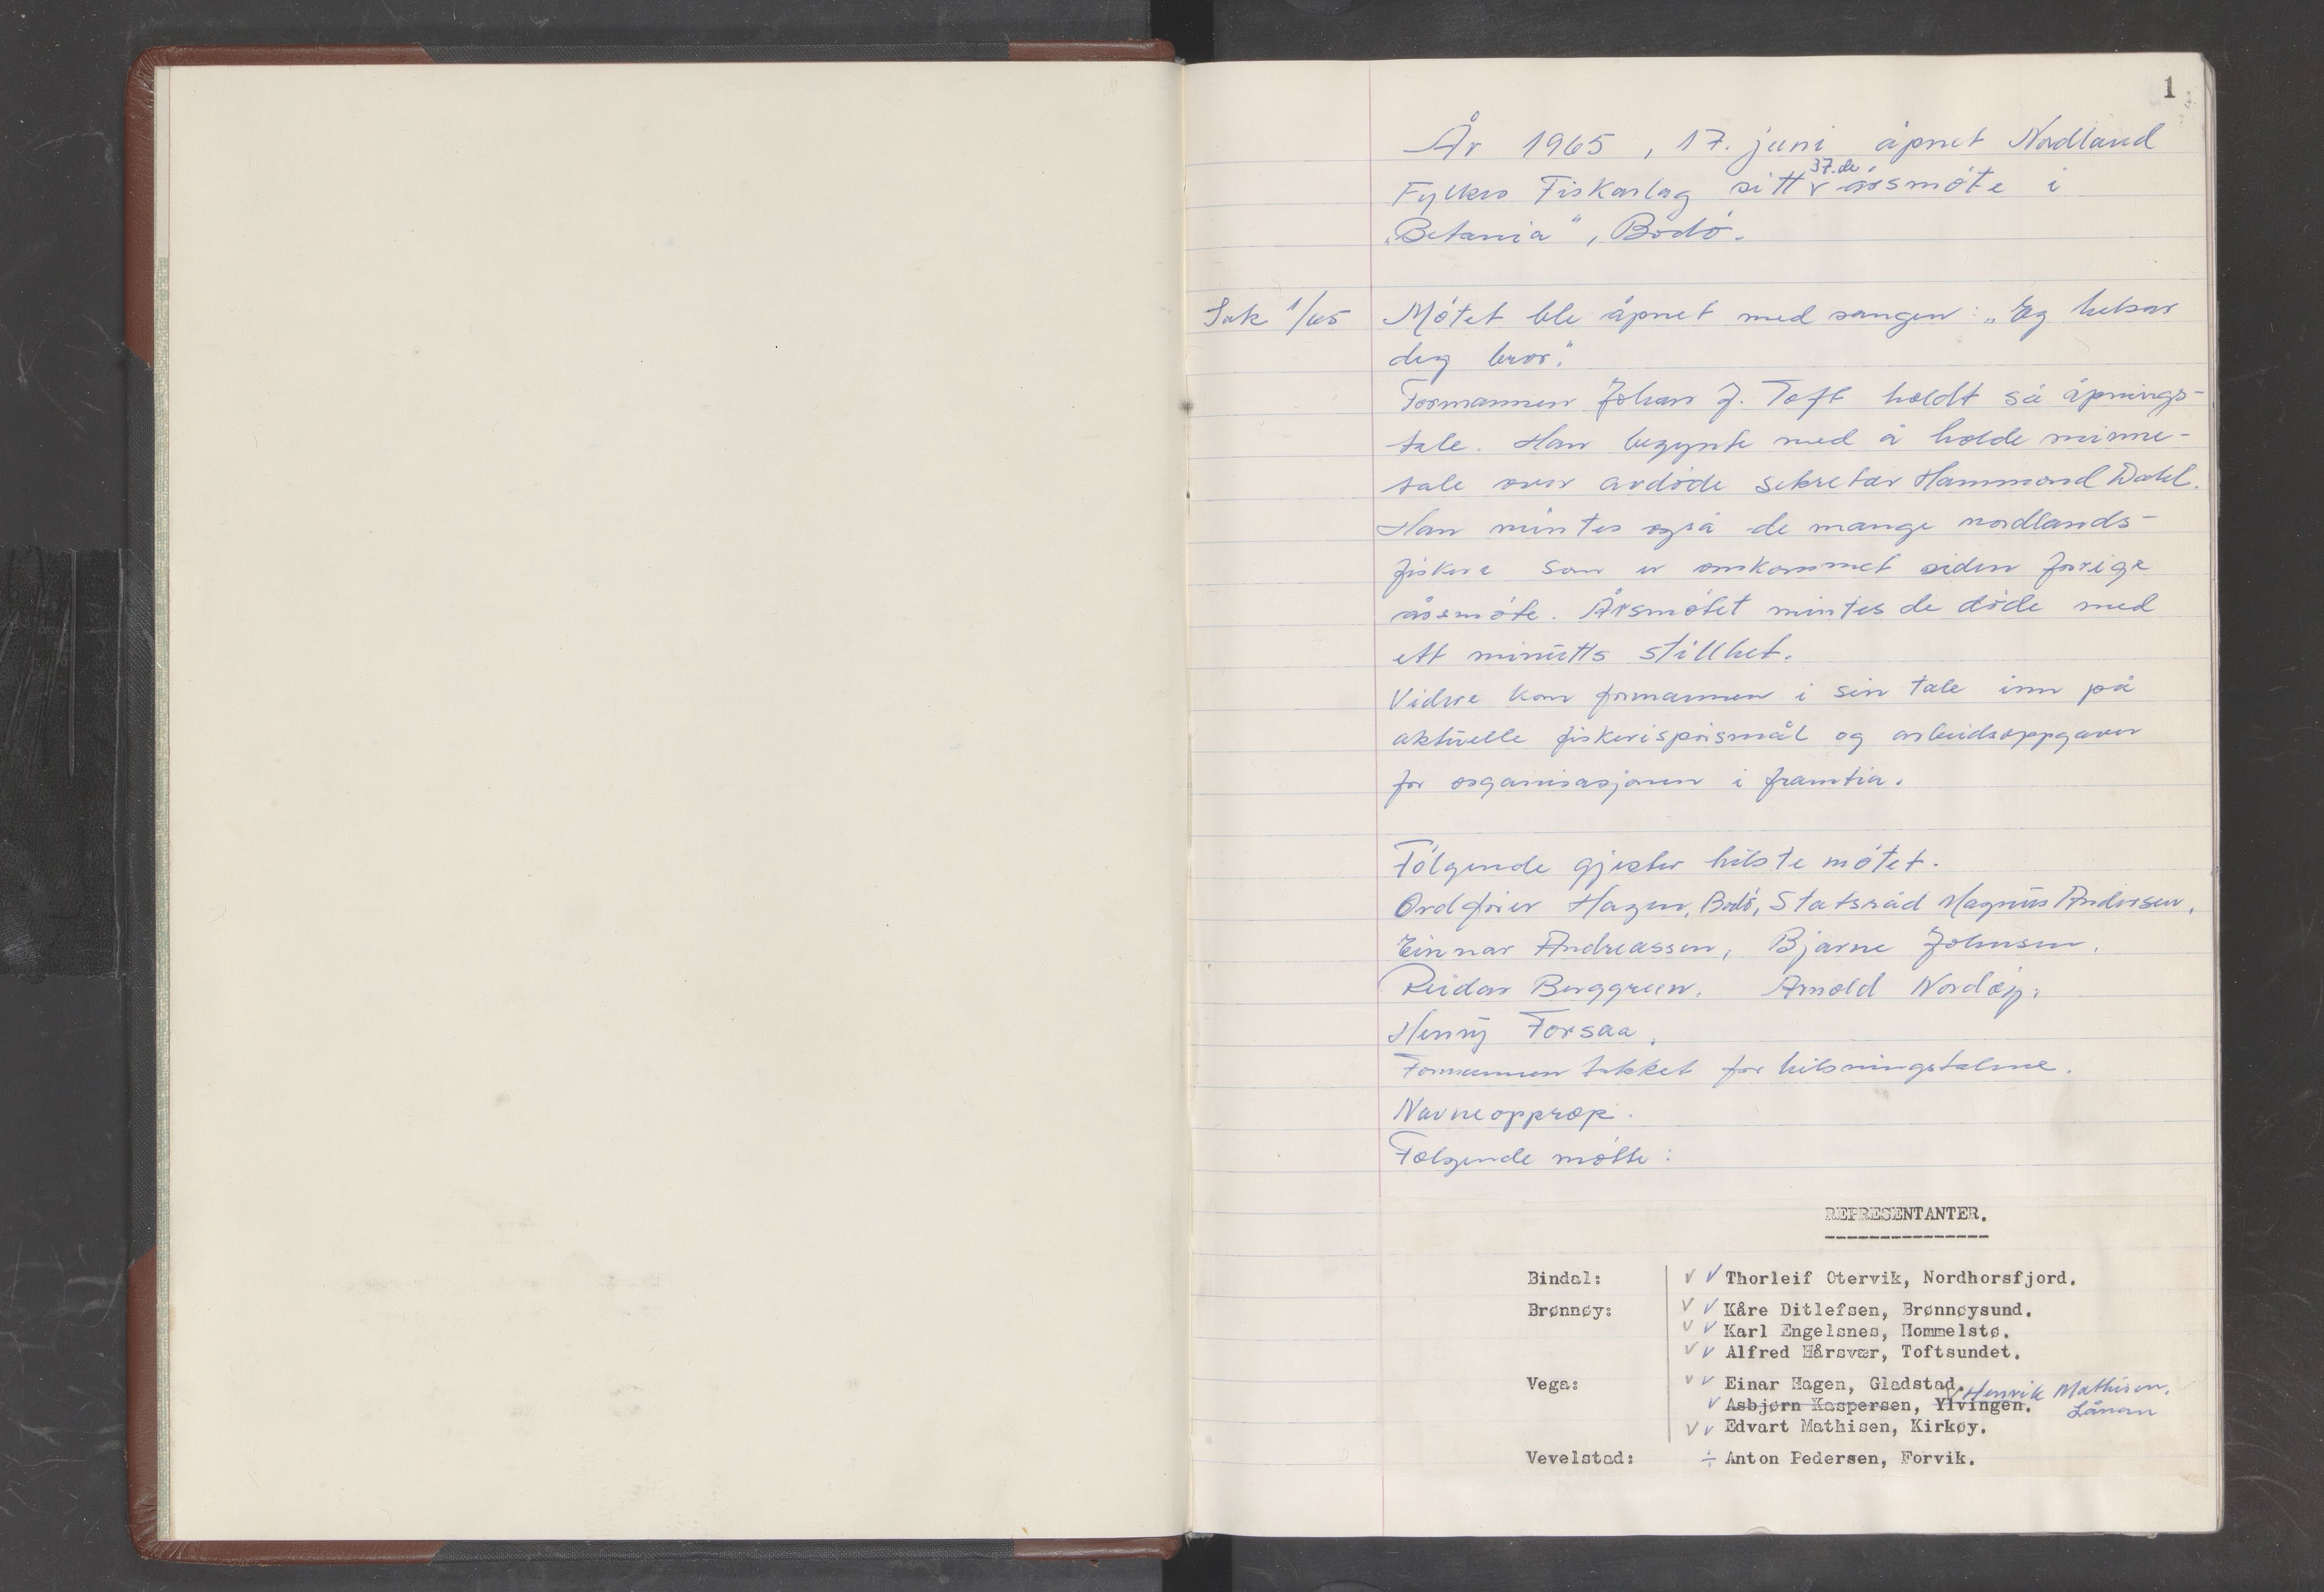 1
År 1965, 17. juni åpnet Nordland
Fylkes Fiskarlag sitt 37.de årsmøte i
„Betania“, Bodø.
Sak 1/65 Møtet ble åpnet med sangen: „Eg helsar
deg bror“.
Formannen Johan J. Toft holdt så åpnings-
tale. Han begynte med å holde minne-
tale over avdøde sekretær Hammond Dahl.
Han mintes også de mange nordlands-
fiskere som er omkommet siden forrige
årsmøte. Årsmøtet mintes de døde med
ett minutts stillhet.
Videre kom formannen i sin tale inn på
aktuelle fiskerispørsmål og arbeidsoppgaver
for organisasjonen i framtia.
Følgende gjester hilste møtet.
Ordfører Hagen, Bodø, Statsråd Magnus Andersen,
Einnar Andreassen, Bjarne Johnsen,
Reidar Berggreen. Arnold
Henry Forsaa,
Formannen takket for hilsningstalene.
Navneopprop.
Følgende møtte:
REPRESENTANTER.
Bindal: V V Thorleif Otervik, Nordhorsfjord.
Brønnøy: V V Kåre Ditlefsen, Brønnøysund.
V V Karl Engelsnes, Hommelstø.
V V Alfred Hårsvær, Toftsundet.
Vega: V V Einar Hagen, Gladstad.
V Asbjørn Kaspersen, Ylvingen. V Henrik Mathisen,
Lånan
V V Edvart Mathisen, Kirkøy.
Vevelstad: ÷ Anton Pedersen, Forvik.